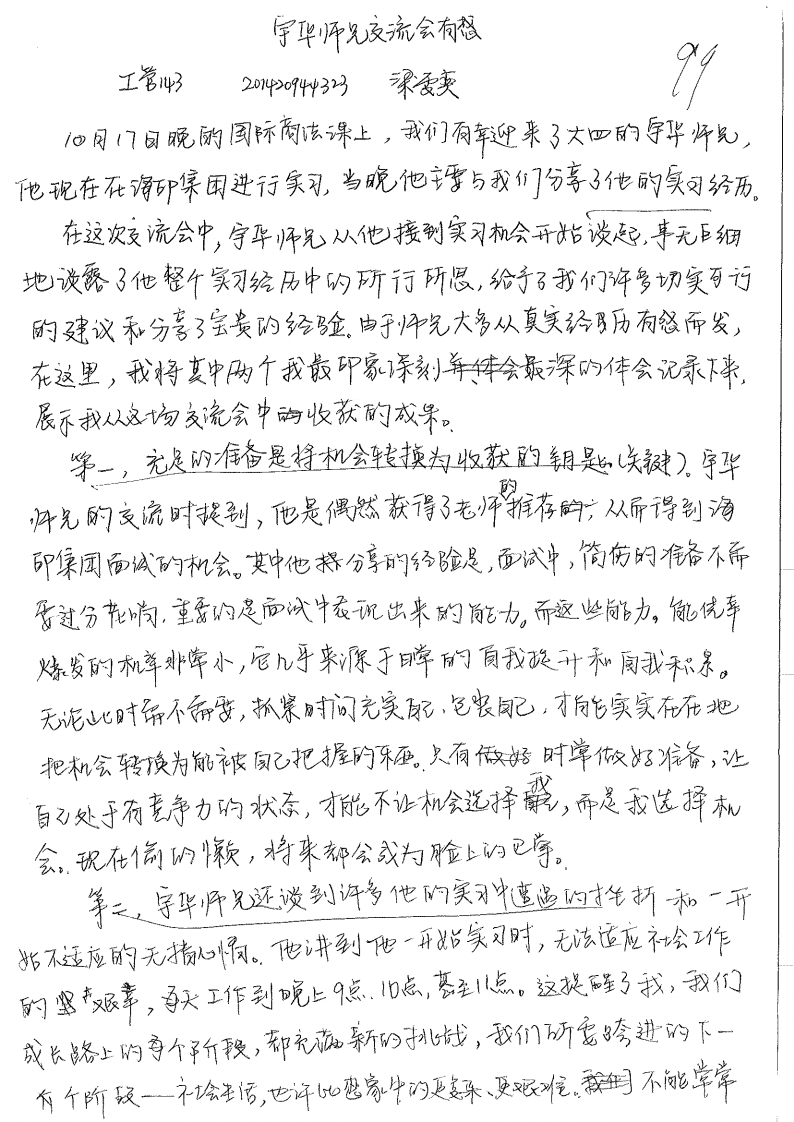 宇华师兄交流会有感
99
工管143 201420944323 梁雯英
10月17日晚的国际商法课上，我们有幸迎来了大四的宇华师兄，
他现在在海印集团进行实习，当晚他主要与我们分享了他的实习经历。
在这次交流会中，宇华师兄从他接到实习机会开始谈起，事无巨细
地谈露了他整个实习经历中的所行所思，给予了我们许多切实可行
的建议和分享了宝贵的经验。由于师兄大多从真实经历有感而发，
在这里，我将其中两个我最印象深刻并体会最深的体会记录下来，
展示我从这场交流会中收获的成果。
第一，充足的准备是将机会转换为收获的钥匙（关键）。宇华
师兄的交流时提到，他是偶然获得了老师的推荐，从而得到海
印集团面试的机会。其中他分享的经验是，面试中，简历的准备不需
要过分花哨，重要的是面试中表现出来的能力。而这些能力。能侥幸
爆发的机率非常小，它几乎来源于日常的自我提升和自我积累。
无论此时需不需要，抓紧时间充实自己，包装自己，才能实实在在地
把机会转换为能被自己把握的东西。只有做好时常做好准备，让
自己处于有竞争力的状态，才能不让机会选择我，而是我选择机
会。现在偷的懒，将来都会成为脸上的巴掌。
第二，宇华师兄还谈到许多他的实习中遭遇的挫折和一开
始不适应的无措心情。他讲到他一开始实习时，无法适应社会工作
的艰辛，每天工作到晚上9点、10点，甚至11点。这提醒了我，我们
成长路上的每个阶段，都充满新的挑战，我们所要跨进的下一
个阶段——社会生活，也许比想象中的更复杂、更艰难。我们不能常常